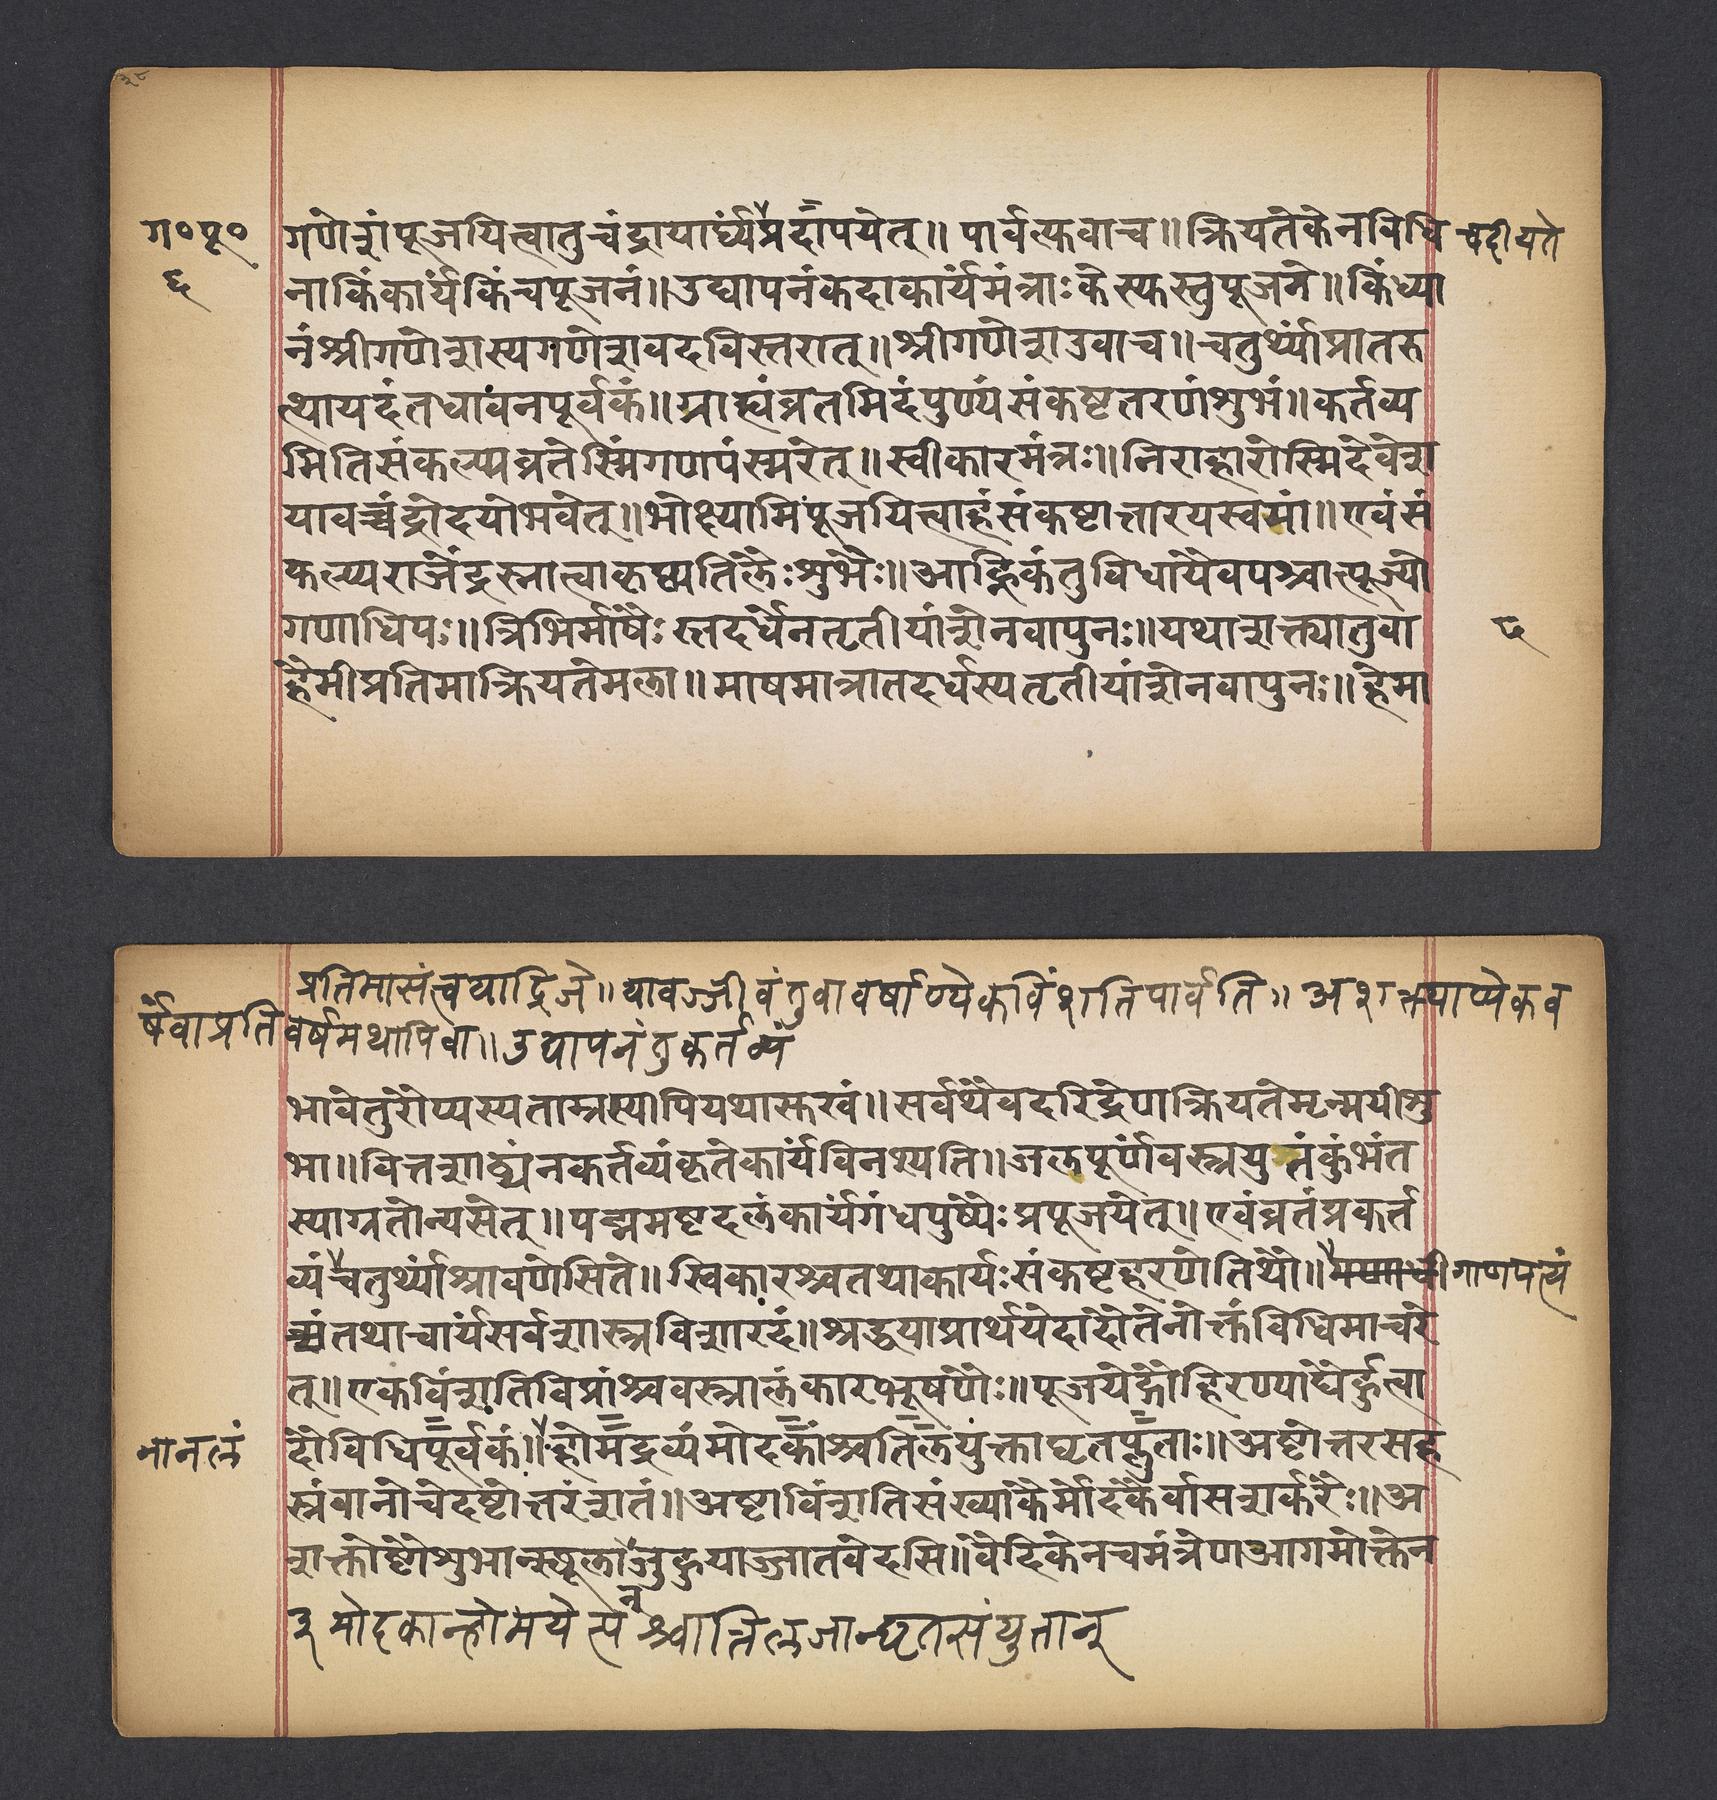 ग०पू०
६
गणेशंपूजयित्वातुचंद्रायार्घ्यंप्रदापयेत्॥ पार्वत्युवाच॥क्रियतेकेनविधि
चदीयते
नाकिंकार्यंकिंचपूजनं॥उद्यापनंकदाकार्यंमंत्राःकेस्युस्तुपूजने॥किंध्या
नंश्रीगणेशस्यगणेशवदविस्तरात्॥श्रीगणेशउवाच॥चतुर्थ्यांप्रातरु
त्थायदंतधावनपूर्वकं॥ग्राह्यंव्रतमिदंपुण्यंसंकष्टतरणंशुभं॥कर्तव्य
मितिसंकल्प्यव्रतेस्मिंगणपंस्मरेत्॥स्वीकारमंत्रः॥निराहारोस्मिदेवेश
यावच्चंद्रोदयोभवेत्॥भोक्ष्यामिपूजयित्वाहंसंकष्टात्तारयस्वमां॥एवंसं
कल्प्यराजेंद्रस्नात्वाकृष्णतिलैःशुभैः॥आह्निकंतुविधायैवपश्चात्पूज्यो
गणाधिपः॥त्रिभिर्माषैःस्तदर्धेनतृतीयांशेनवापुनः॥यथाशक्त्यातुवा
हैमीप्रतिमाक्रियतेमला॥माषमात्रातदर्धस्यतृतीयांशेनवापुनः॥हेमा
प्रतिमासंत्वयाद्रिजे॥यावज्जीवंतुवावर्षाण्येकविंशतिपार्वति॥अशक्त्याप्येकव
र्षंवाप्रतिवर्षमथापिवा॥उद्यापनंतुकर्तव्यं
भावेतुरौप्यस्यताम्रस्यापियथासुखं॥सर्वथैवदरिद्रेणाक्रियतेमृन्मयीशु
भा॥वित्तशाठ्यंनकर्तव्यंकृतेकार्यंविनश्यति॥जलपूर्णंवस्त्रयुतंकुंभंत
स्याग्रतोन्यसेत्॥पद्ममष्टदलंकार्यंगंधपुष्पैःप्रपूजयेत्॥एवंव्रतंप्रकर्त
व्यंचतुर्थ्यांश्रावणेसिते॥स्विकारश्चतथाकार्यःसंकष्टहरणेतिथौ॥
गाणपत्यं
तथाचार्यंसर्वशास्त्रविशारदं॥श्रद्धयाप्रार्थयेदादौतेनोक्तंविधिमाचरे
त्॥एकविंशतिविप्रांश्चवस्त्रालंकारभूषणैः॥पूजयेद्गोहिरण्याद्यैर्हुत्वा
दौविधिपूर्वकं॥होमद्रव्यंमोदकांश्चतिलयुक्ताघृतप्लुताः॥अष्टोत्तरसह
स्रंवानोचेदष्टोत्तरंशतं॥अष्टाविंशतिसंख्याकैर्मोदकैर्वासशर्करैः॥अ
शक्तोष्टौशुभान्स्थूलाजुहुयाज्जातवेदसि॥वैदिकेनचमंत्रेणआगमोक्तेन
मोदकान्होमयेत्पश्चात्तिलजान्घृतसंयुतान्